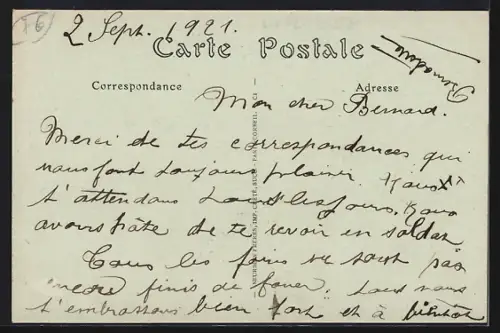 (76)
2 Sept. 1921.
Carte Postale
Correspondance
Adresse
Mon cher Bernard.
Merci de tes correspondances qui
nous font toujours plaisir. Nous
t'attendons tous les jours. Nous
avons hâte de te revoir en soldat
Tous les foins ne sont pas
encore finis de faner. Tous nous
t'embrassons bien fort et à bientôt